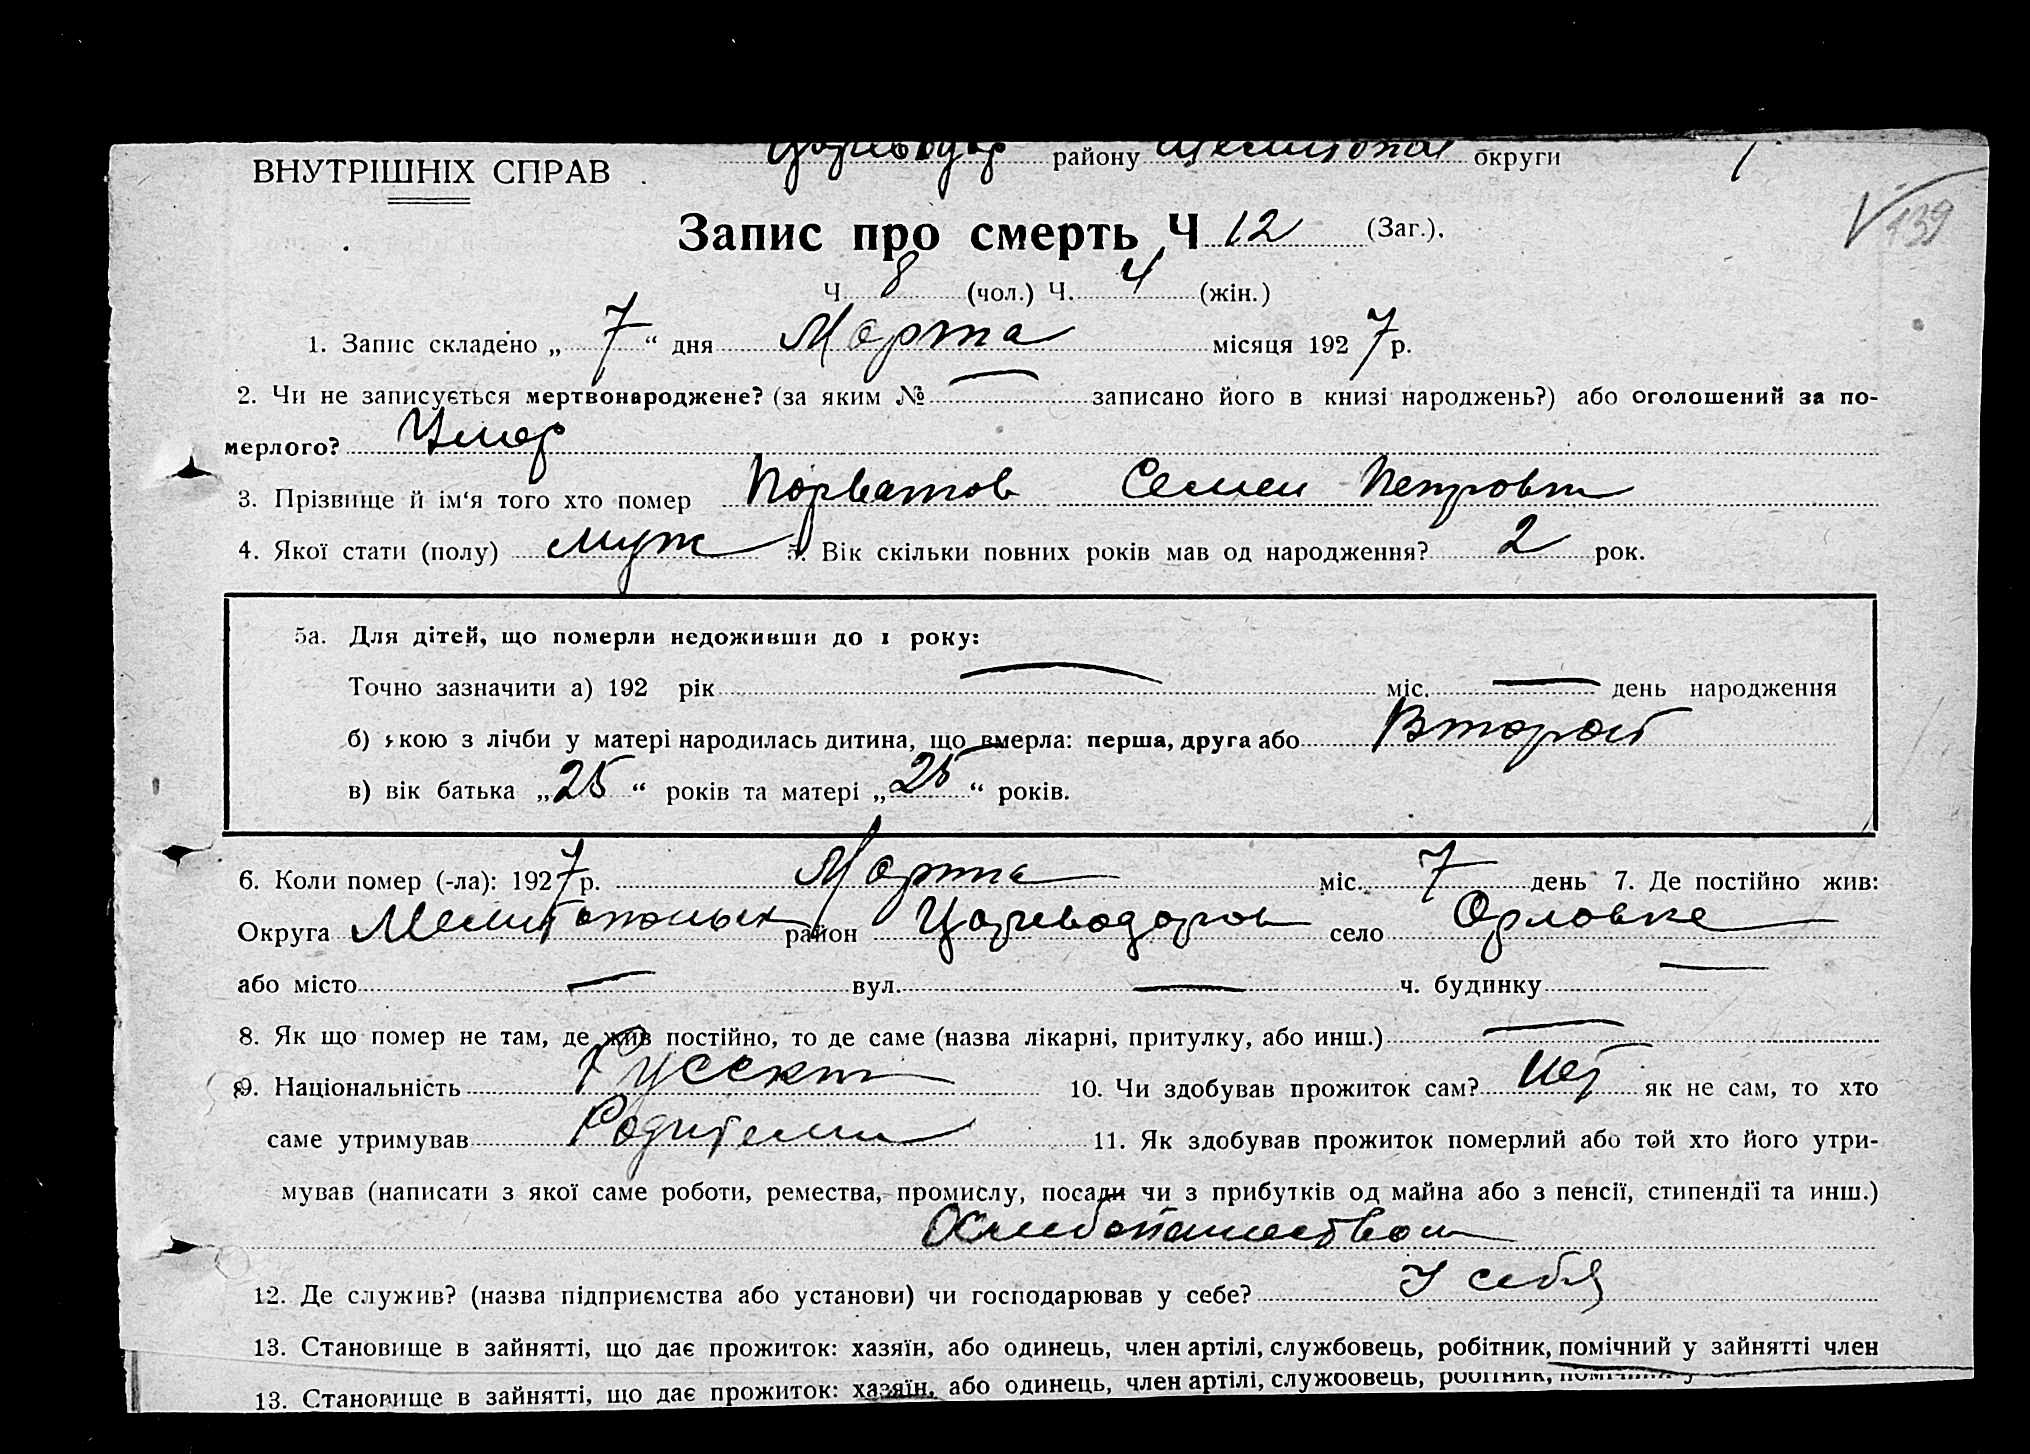 ВНУТРІШНІХ СПРАВ . району округи
139
Запис про смерть Ч 12 (Заг.).
Ч. 8 (чол.) Ч. 4 (жін.)
1. Запис складено „ 7 “ дня Марта місяця 1927 р.
2. Чи не записується мертвонароджене? (за яким № — записано його в книзі народжень?) або оголошений за по-
мерлого? Умер
3. Прізвище й ім‘я того хто помер Порватов Семен Петрович
4. Якої стати (полу) муж 5. Вік скільки повних років мав од народження? 2 рок.
5а. Для дітей, що померли недоживши до 1 року:
Точно зазначити а) 192 рік — міс. — день народження
б) якою з лічби у матері народилась дитина, що вмерла: перша, друга або Второй
в) вік батька „25“ років та матері „25“ років.
6. Коли помер (-ла): 1927 р. Марта міс. 7 день 7. Де постійно жив:
Округа район село Орловке
або місто — вул. — ч. будинку —
8. Як що помер не там, де жив постійно, то де саме (назва лікарні, притулку, або инш.) —
9. Національність 10. Чи здобував прожиток сам? Нет як не сам, то хто
саме утримував Родители 11. Як здобував прожиток померлий або той хто його утри-
мував (написати з якої саме роботи, ремества, промислу, посади чи з прибутків од майна або з пенсії, стипендії та инш.)
Хлебопашеством
12. Де служив? (назва підприємства або установи) чи господарював у себе? У себя
13. Становище в зайнятті, що дає прожиток: хазяїн, або одинець, член артілі, службовець, робітник, помічний у зайнятті член
13. Становище в зайнятті, що дає прожиток: хазяїн, або одинець, член артілі, службовець, робітник,